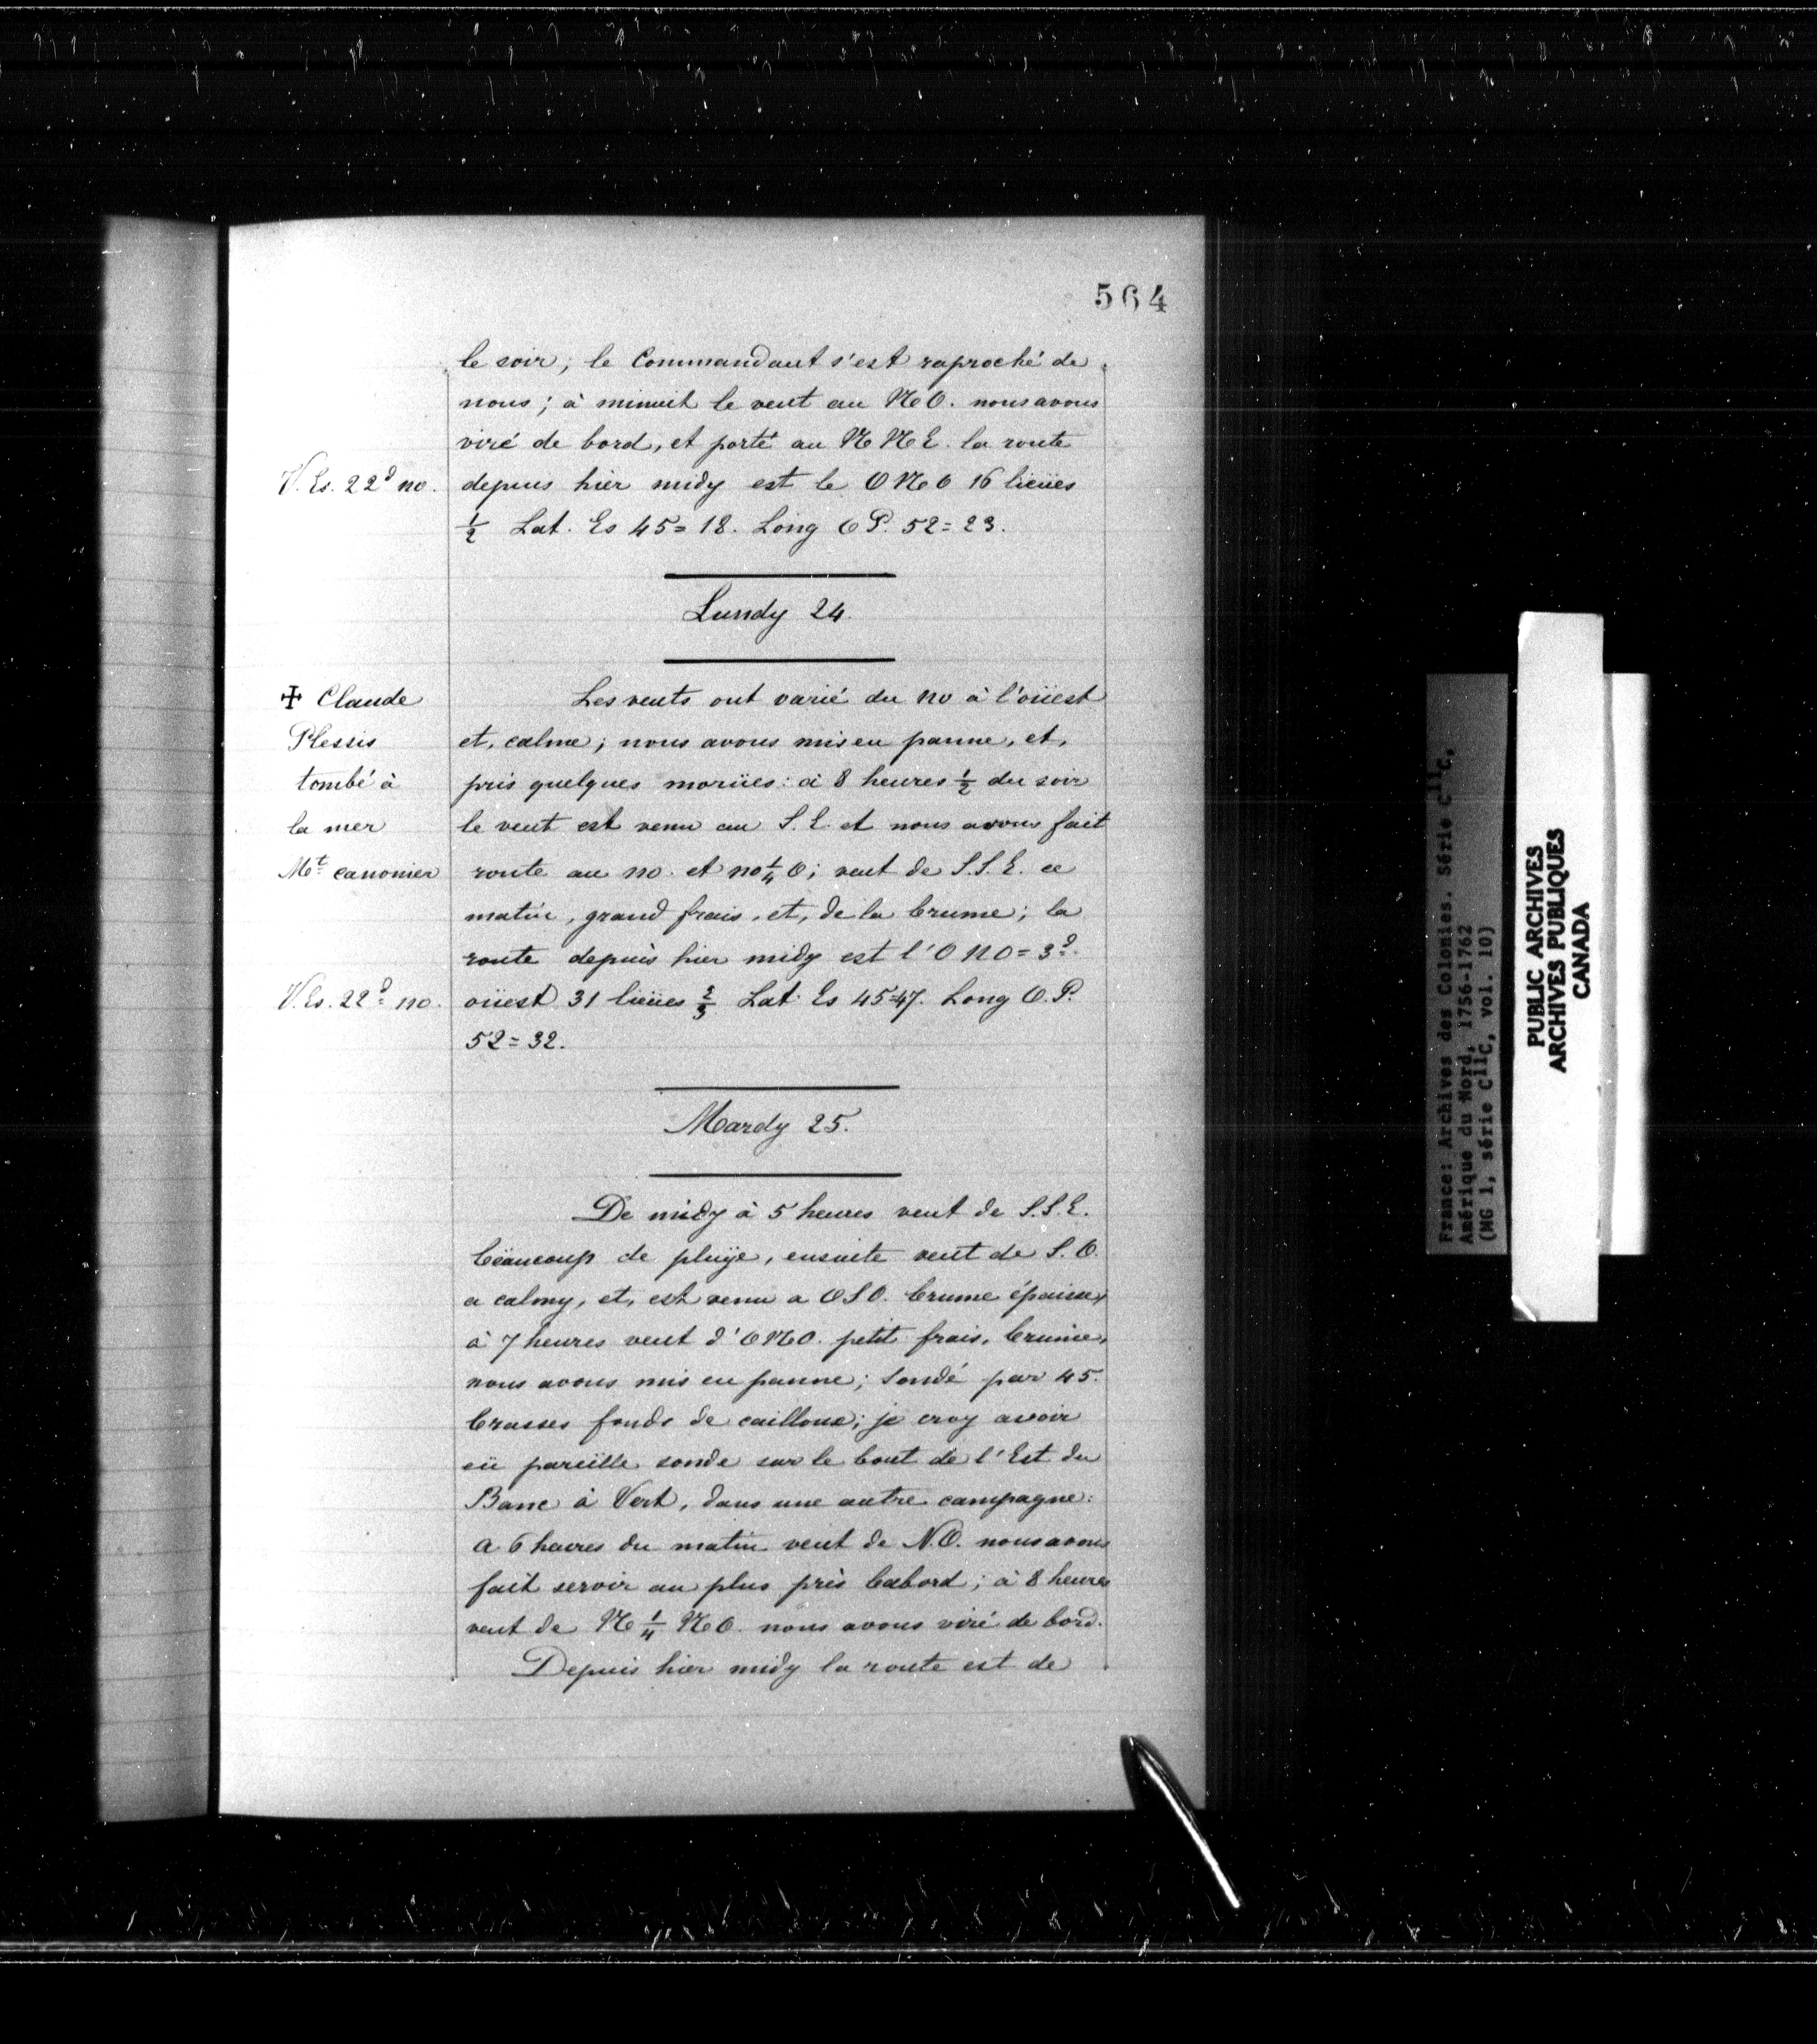 564
le soir; le Commandant s'est raproché de
nous; à minuit le vent au NO. nous avons
viré de bord, et porté au NNE. la route
V. Es. 22d no.
depuis hier midy est le ONO 16 lieües
1/2 Lat. Es 45=18. Long OP. 52=23.
Lundy 24.
✠ Claude
Plessis
tombé à
la mer
Mt. canonier
Les vents ont varié du no à l'oüest
et, calme; nous avons mis en panne, et,
pris quelques morües: à 8 heures 1/2 du soir
le vent est venu au S.E. et nous avons fait
route au no. et no 1/4 O; vent de S.S.E. ce
matin, grand frais, et, de la brume; la
route depuis hier midy est l'ONO=3d.
V. Es. 22d. no.
oüest 31 lieües 2/3 Lat. Es 45=47. Long O.P.
52=32.
Mardy 25.
De midy à 5 heures vent de S.S.E.
beaucoup de pluÿe, ensuite vent de S.O.
a calmy, et, est venu a OSO. brume épaisse,
à 7 heures vent d'ONO. petit frais, bruine,
nous avons mis en panne; Sondé par 45.
brasses fonds de cailloux; je croy avoir
eü pareille sonde sur le bout de l'Est du
Banc à Vert, dans une autre campagne:
a 6 heures du matin vent de N.O. nous avons
fait servir au plus près babord; à 8 heures
vent de N 1/4 NO. nous avons viré de bord.
Depuis hier midy la route est de
France: Archives des Colonies. Série C11C,
Amérique du Nord, 1756-1762
(MG 1, série C11C, vol. 10)
PUBLIC ARCHIVES
ARCHIVES PUBLIQUES
CANADA